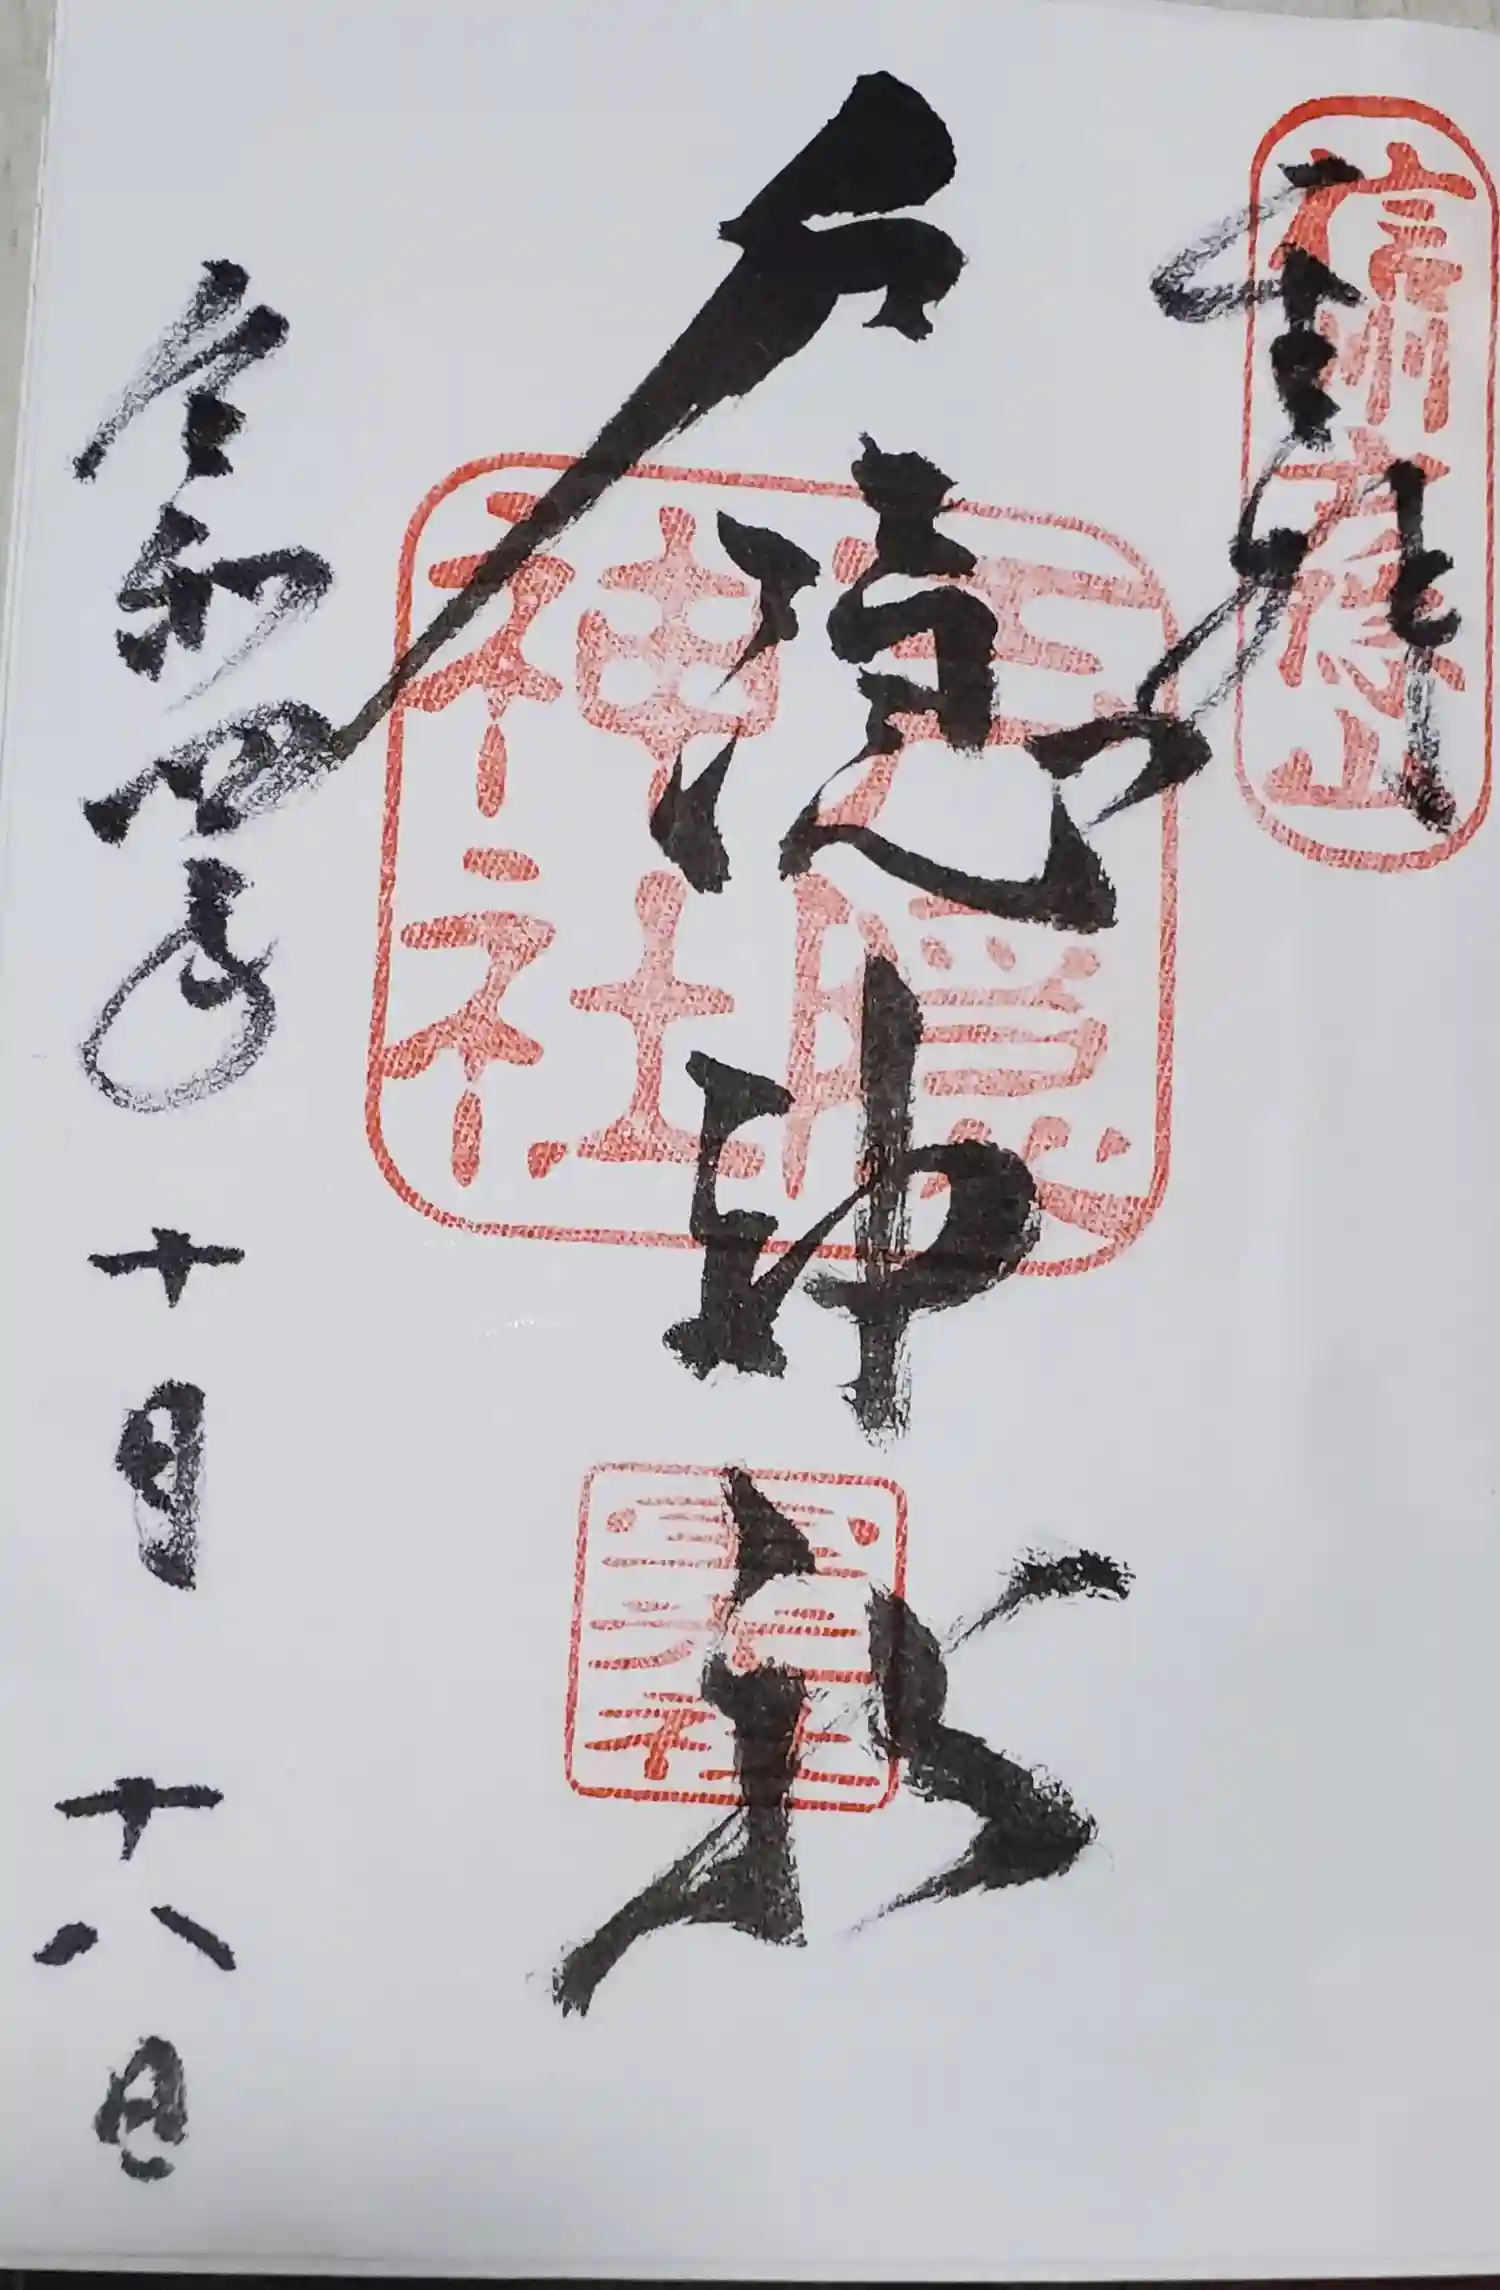 信州戸隠山
奉拝
戸隠神社
戸隠神社
宝光社
令和四年十月十八日